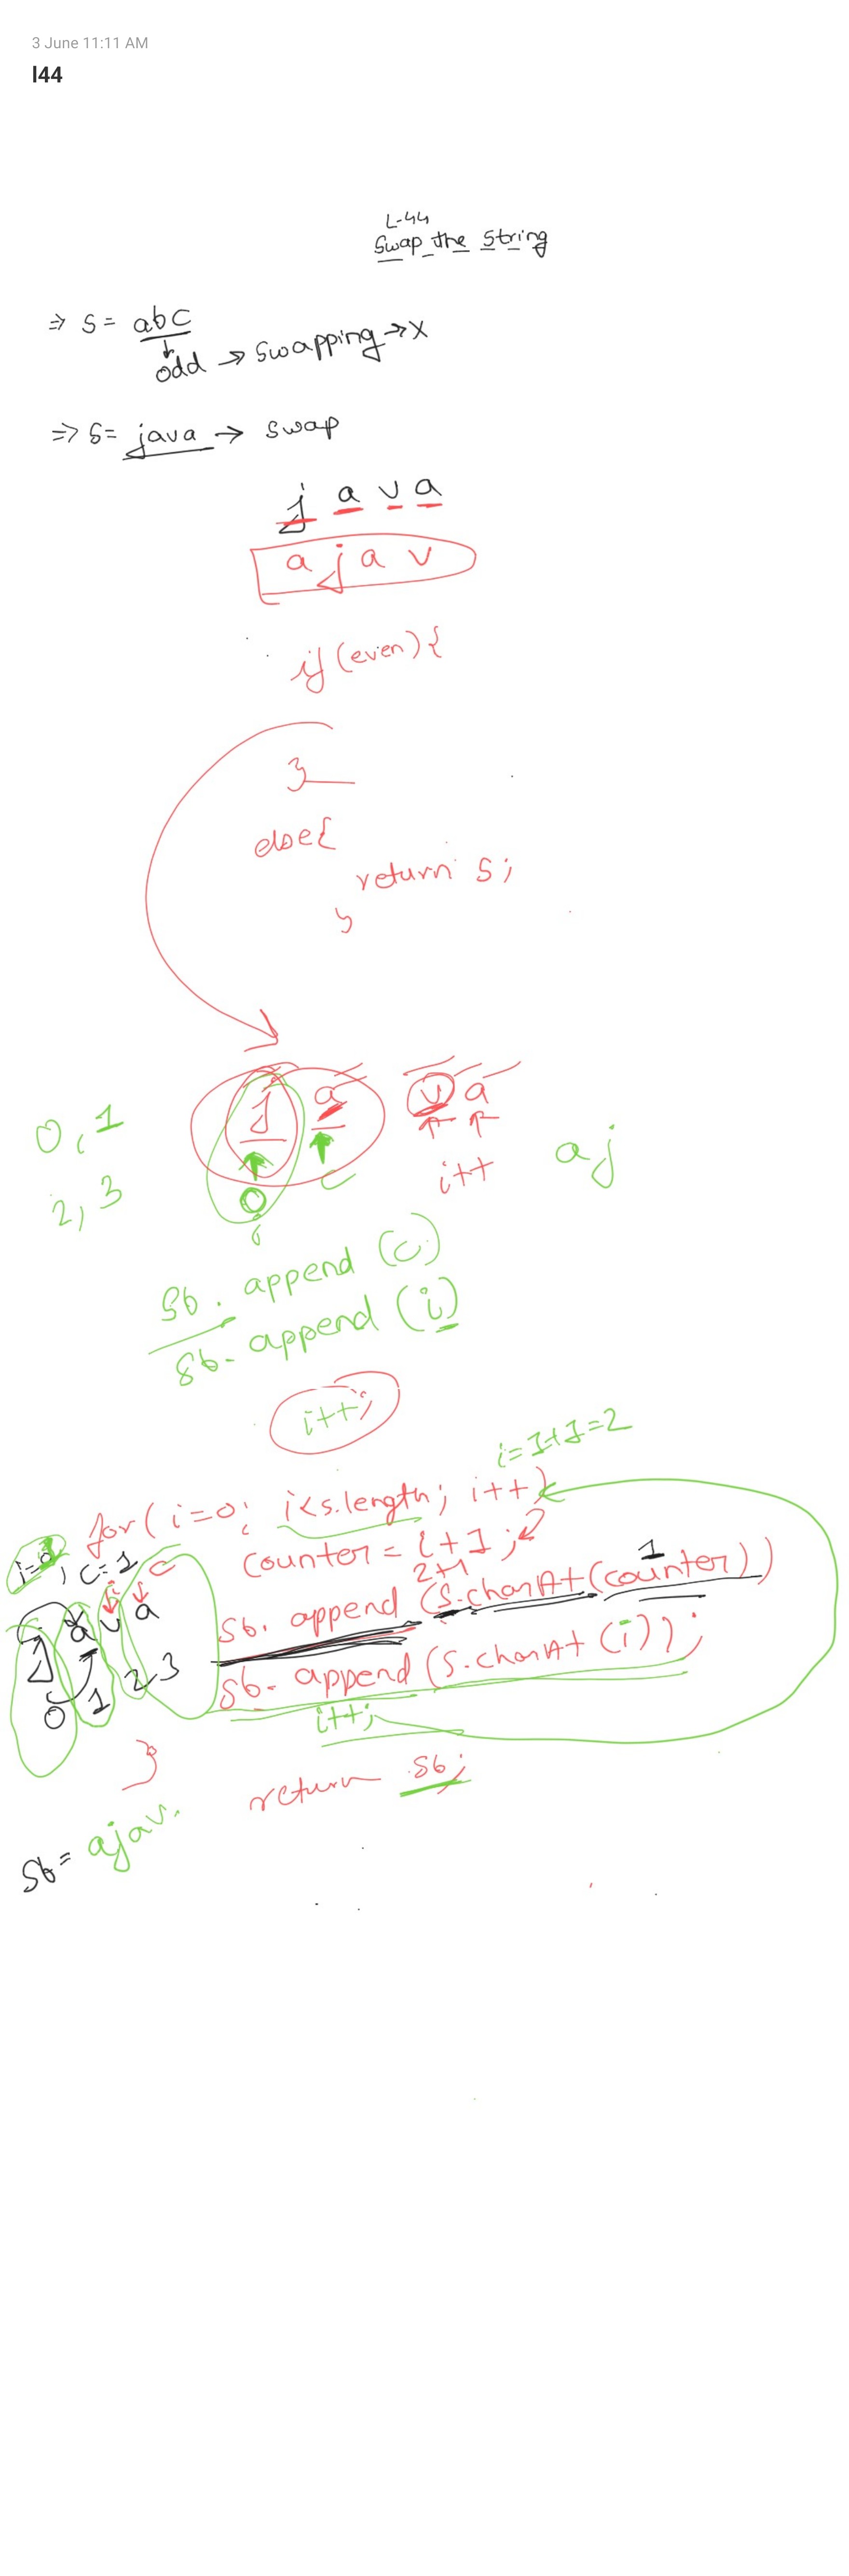 3 June 11:11 AM
l44
L-44
Swap the String
⇒ S = abc
odd → Swapping → X
⇒ S = java → swap
j a v a
a j a v
if (even) {
}
else {
return S;
}
0, 1
j a v a
a j
2, 3
c
i++
0
i
Sb. append (c)
Sb. append (i)
i++;
i = 1+1 = 2
for ( i=0; i<s.length; i++)
i=0, c=1
c
counter = i+1;
2+1
1
i
Sb. append (S.charAt (counter))
j a v a
Sb. append (S.charAt (i));
0 1 2, 3
i++;
}
return Sb;
Sb = ajav.